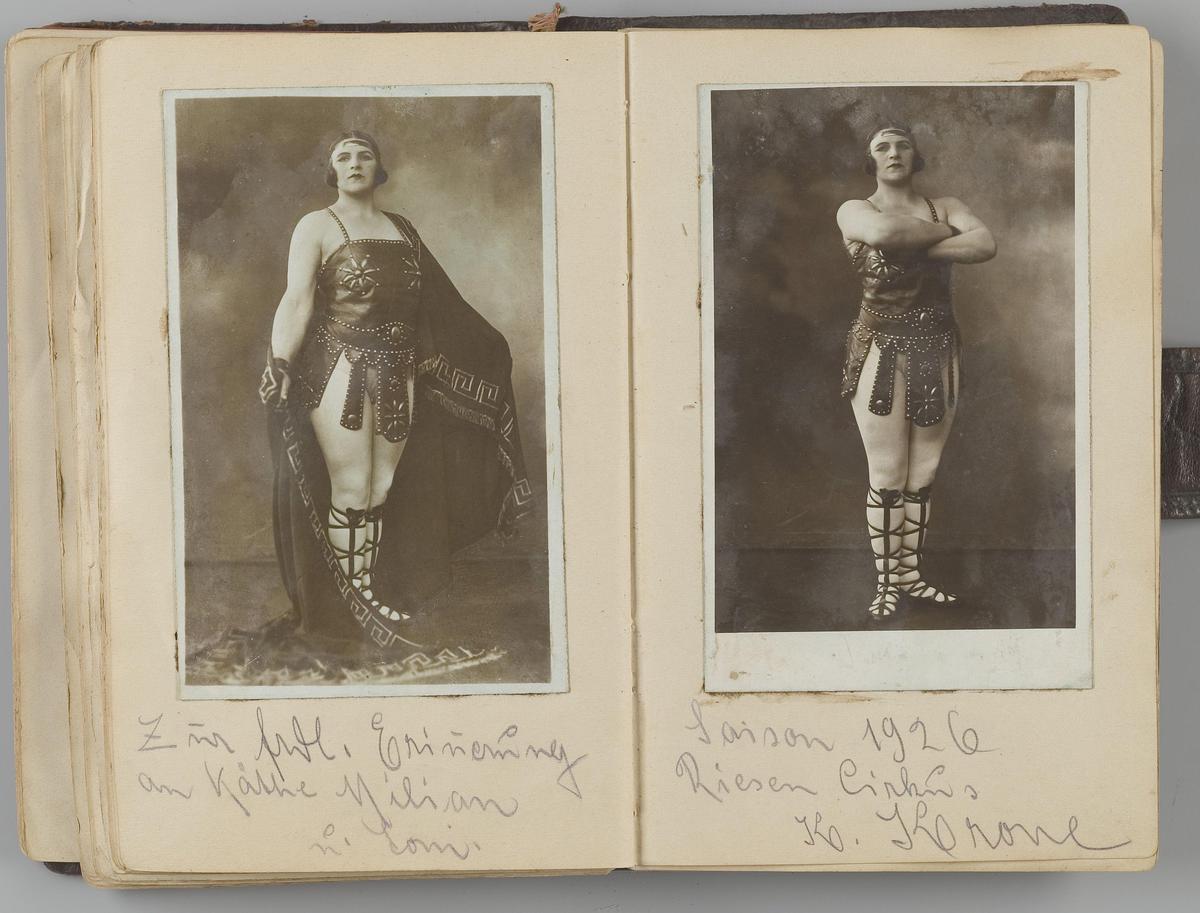 Zur frdl. Erinerung
an Käthe Milian
u. Loni.
Saison 1926
Riesen Cirkus
K. Krone